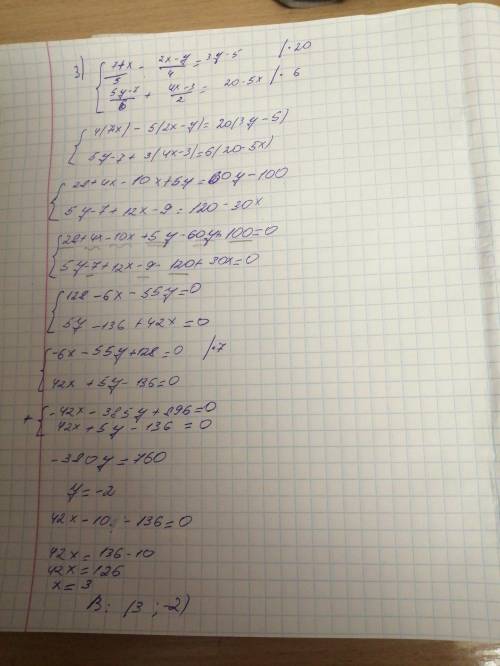 3) { (7+x)/5 - (2x-y)/4 = 3y-5 /·20
(5y-7)/6 + (4x-3)/2 = 20-5x /·6
{ 4(7x) - 5(2x-y) = 20(3y-5)
5y-7+3(4x-3)=6(20-5x)
{ 28+4x-10x+5y=60y-100
5y-7+12x-9=120-30x
{ 28+4x-10x+5y-60y+100=0
5y-7+12x-9-120+30x=0
{ 128-6x-55y=0
5y-136+42x=0
{ -6x-55y+128=0 /·7
42x+5y-136=0
+ { -42x-385y+896=0
42x+5y-136=0
-380y=760
y=-2
42x-10-136=0
42x=136-10
42x=126
x=3
В: (3;-2)